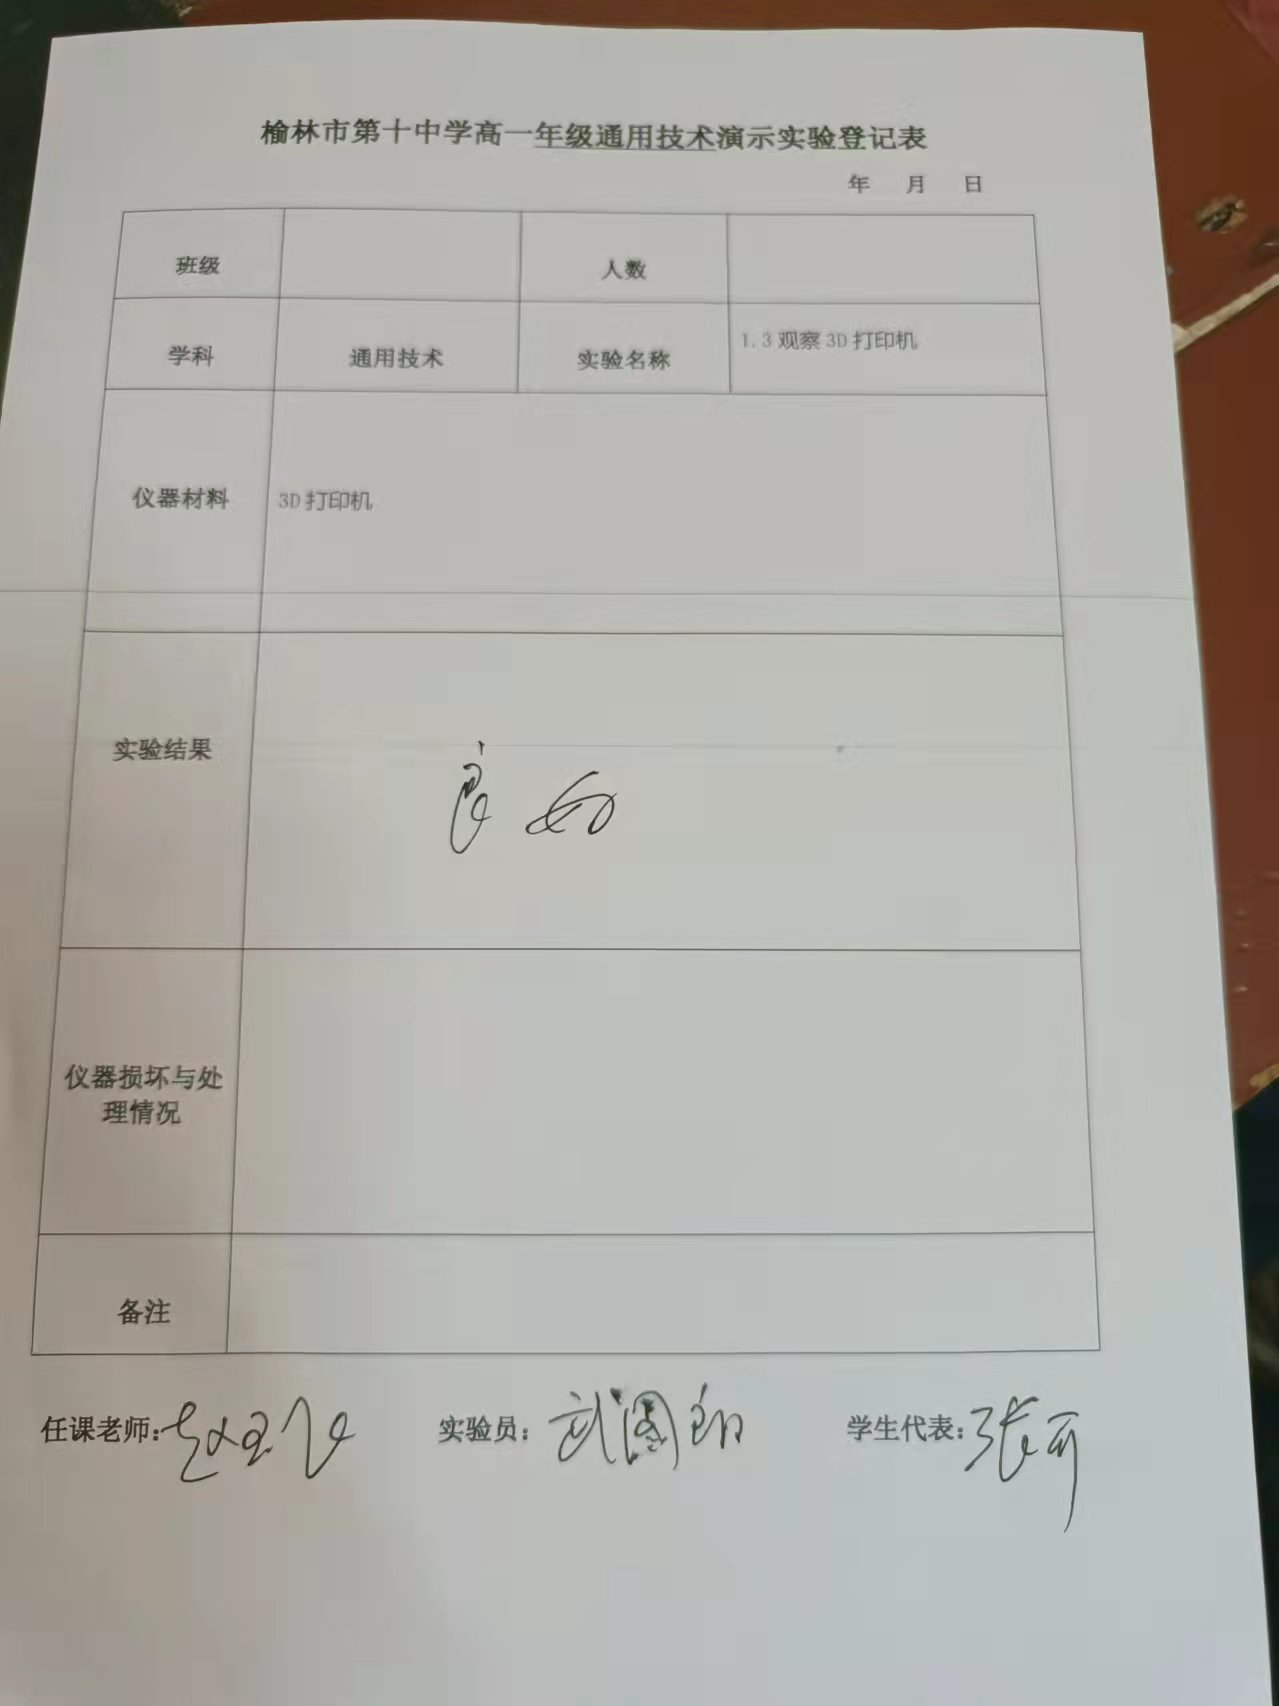 榆林市第十中学高一年级通用技术演示实验登记表
年 月 日
班级 人数
学科 通用技术 实验名称 1.3 观察 3D 打印机
仪器材料 3D 打印机
实验结果 良好
仪器损坏与处
理情况
备注
任课老师: 实验员: 学生代表: